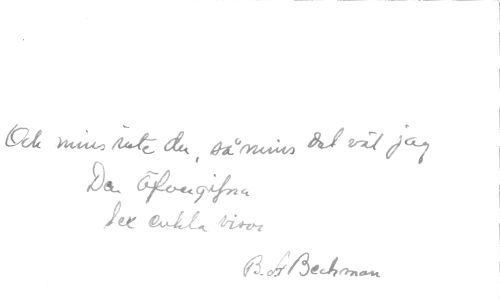 Och mins inte du, så mins det väl jag
Den Öfvergifna
Sex enkla visor
B. H. Beckman